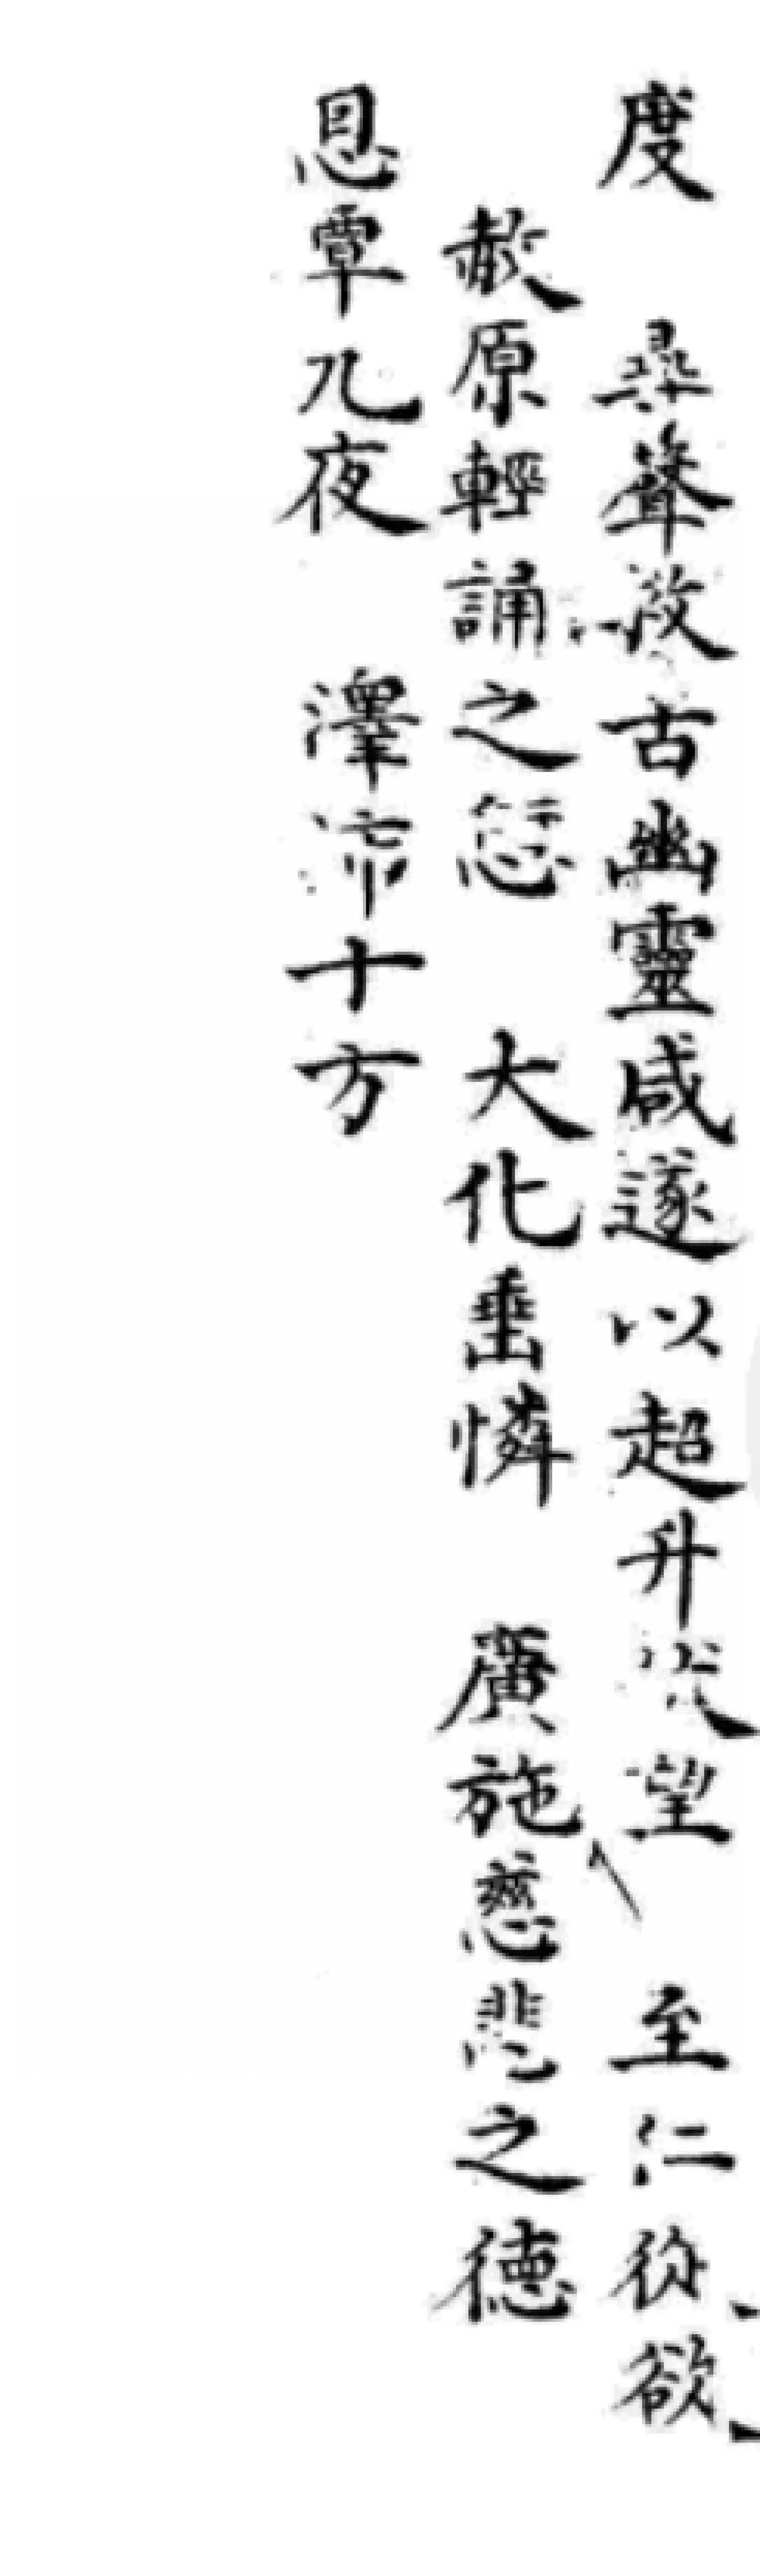 度 尋聲救古幽靈咸遂以超升哭望 至仁從欲
赦原輕誦之愆 大化垂憐 廣施慈悲之德
恩覃九夜 澤沛十方